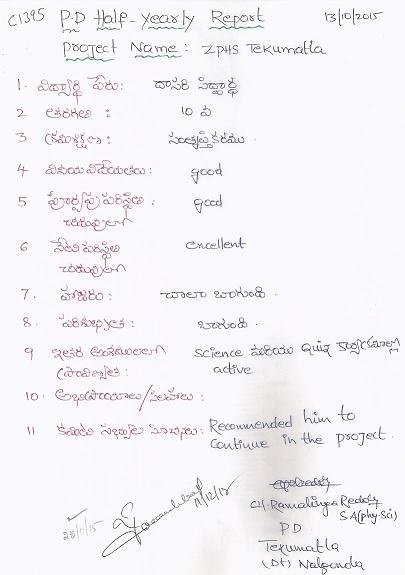 C1395 P.D Half-Yearly Report 13/10/2015
Project Name: ZPHS Tekumatla
1. విద్యార్థి పేరు: దాసరి సిద్ధార్థ
2 తరగతి : 10 వ
3 క్రమశిక్షణ : సంతృప్తికరము .
4 వినయవిధేయతలు: good
5 పూర్వపు పరిస్థితి good
చదువులో
6 నేటి పరిస్థితి excellent
చదువులో
7. హాజరు: చాలా బాగుంది.
8. పరిశుభ్రత: బాగుంది.
9 ఇతర అంశములలో Science మరియు Quiz
ప్రావీణ్యత: active
10. అభిప్రాయాలు/సలహాలు:
11 కమిటి సభ్యుల సూచనలు: Recommended him to
Continue in the project.
CH. Ramalinga Reddy
S A (phy. Sci)
11/12/15
PD
Tekumatla
(Dt) Nalgonda